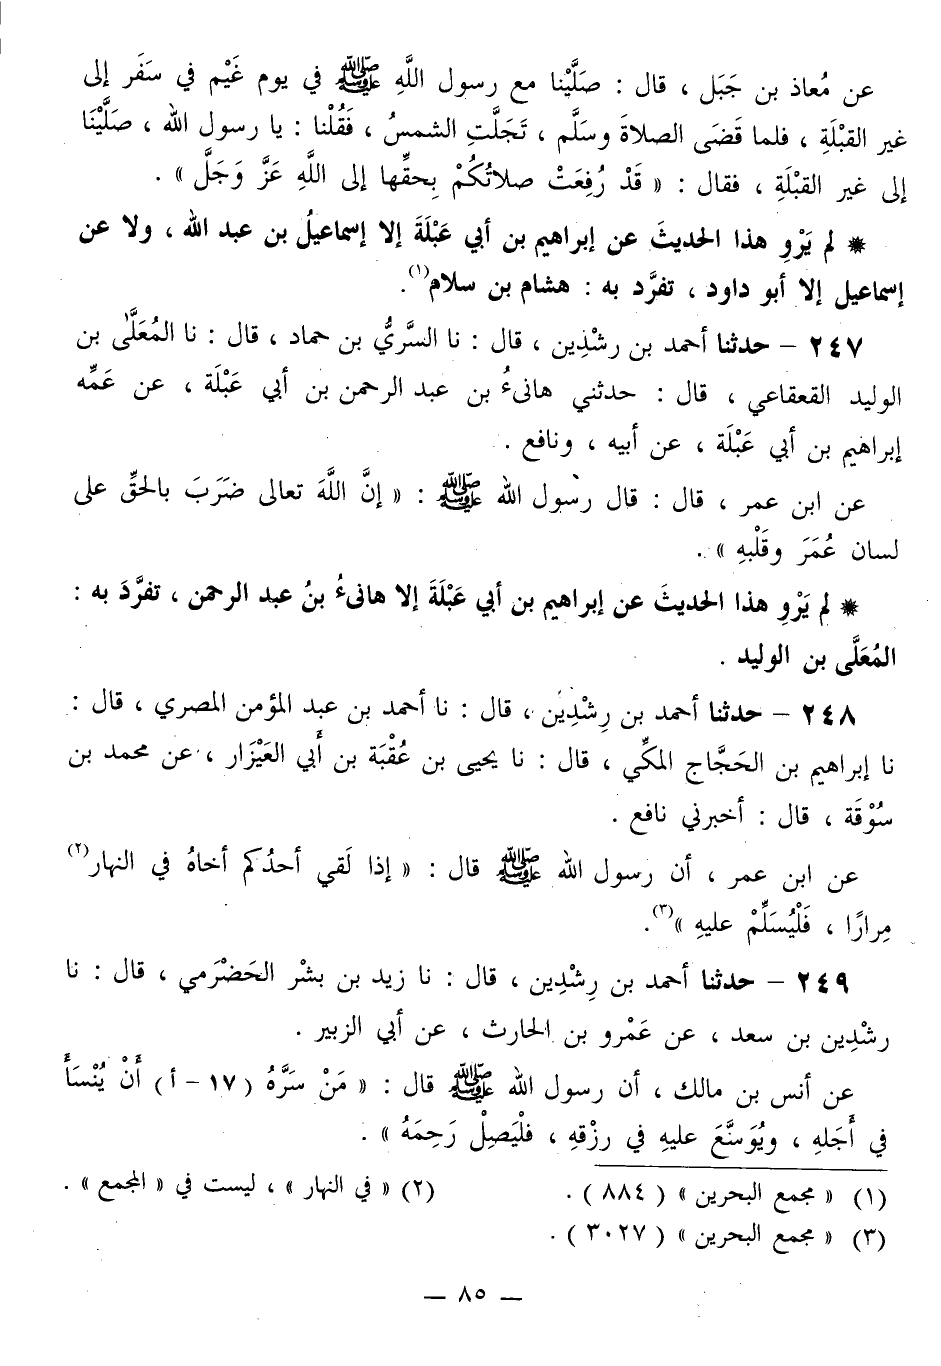 عن مُعاذ بن جَبَل ، قال : صَلَّيْنا مع رسول اللَّهِ ﷺ في يوم غَيْم في سَفَر إلى
غير القبْلَةِ ، فلما قَضَى الصلاةَ وسَلَّم ، تَجَلَّتِ الشمسُ ، فَقُلْنا : يا رسول الله ، صَلَّيْنَا
إلى غير القبْلَةِ ، فقال : « قَدْ رُفِعَتْ صلاتُكُمْ بِحقِّها إلى اللَّهِ عَزَّ وَجَلَّ » .
* لم يَرْوِ هذا الحديثَ عن إبراهيم بن أبي عَبْلَةَ إلا إسماعيلُ بن عبد الله ، ولا عن
إسماعيل إلا أبو داود ، تفرَّد به : هشام بن سلام(١).
٢٤٧ – حدثنا أحمد بن رشْدِين ، قال : نا السَّريُّ بن حماد ، قال : نا المُعَلَّى بن
الوليد القعقاعي ، قال : حدثني هانىءُ بن عبد الرحمن بن أبي عَبْلَة ، عن عَمِّه
إبراهيم بن أبي عَبْلَة ، عن أبيه ، ونافع .
عن ابن عمر ، قال : قال رسول الله ﷺ : « إنَّ اللَّهَ تعالى ضَرَبَ بالحَقِّ على
لسان عُمَرَ وقَلْبهِ » .
* لم يَرْوِ هذا الحديثَ عن إبراهيم بن أبي عَبْلَةَ إلا هانىءُ بنُ عبد الرحمن ، تفرَّدَ به :
المُعَلَّى بن الوليد .
٢٤٨ – حدثنا أحمد بن رِشْدِين ، قال : نا أحمد بن عبد المؤمن المصري ، قال :
نا إبراهيم بن الحَجَّاج المكِّي ، قال : نا يحيى بن عُقْبَة بن أَبي العَيْزَار ، عن محمد بن
سُوْقَة ، قال : أخبرني نافع .
عن ابن عمر ، أن رسول الله ﷺ قال : « إذا لَقي أحدُكم أخاهُ في النهار(٢)
مِرارًا ، فَلْيُسَلِّمْ عليهِ »(٣).
٢٤٩ – حدثنا أحمد بن رِشْدِين ، قال : نا زيد بن بشْر الحَضْرَمي ، قال : نا
رشْدِين بن سعد ، عن عَمْرو بن الحارث ، عن أبي الزبير .
عن أنس بن مالك ، أن رسول الله ﷺ قال : « مَنْ سَرَّهُ ( ١٧ – أ ) أَنْ يُنْسَأَ
في أَجَلهِ ، ويُوَسَّعَ عليهِ في رزْقهِ ، فلْيَصِلْ رَحِمَهُ » .
(١) « مجمع البحرين » ( ٨٨٤ ) . (٢) « في النهار » ، ليست في « المجمع » .
(٣) « مجمع البحرين » ( ٣٠٢٧ ) .
— ٨٥ —